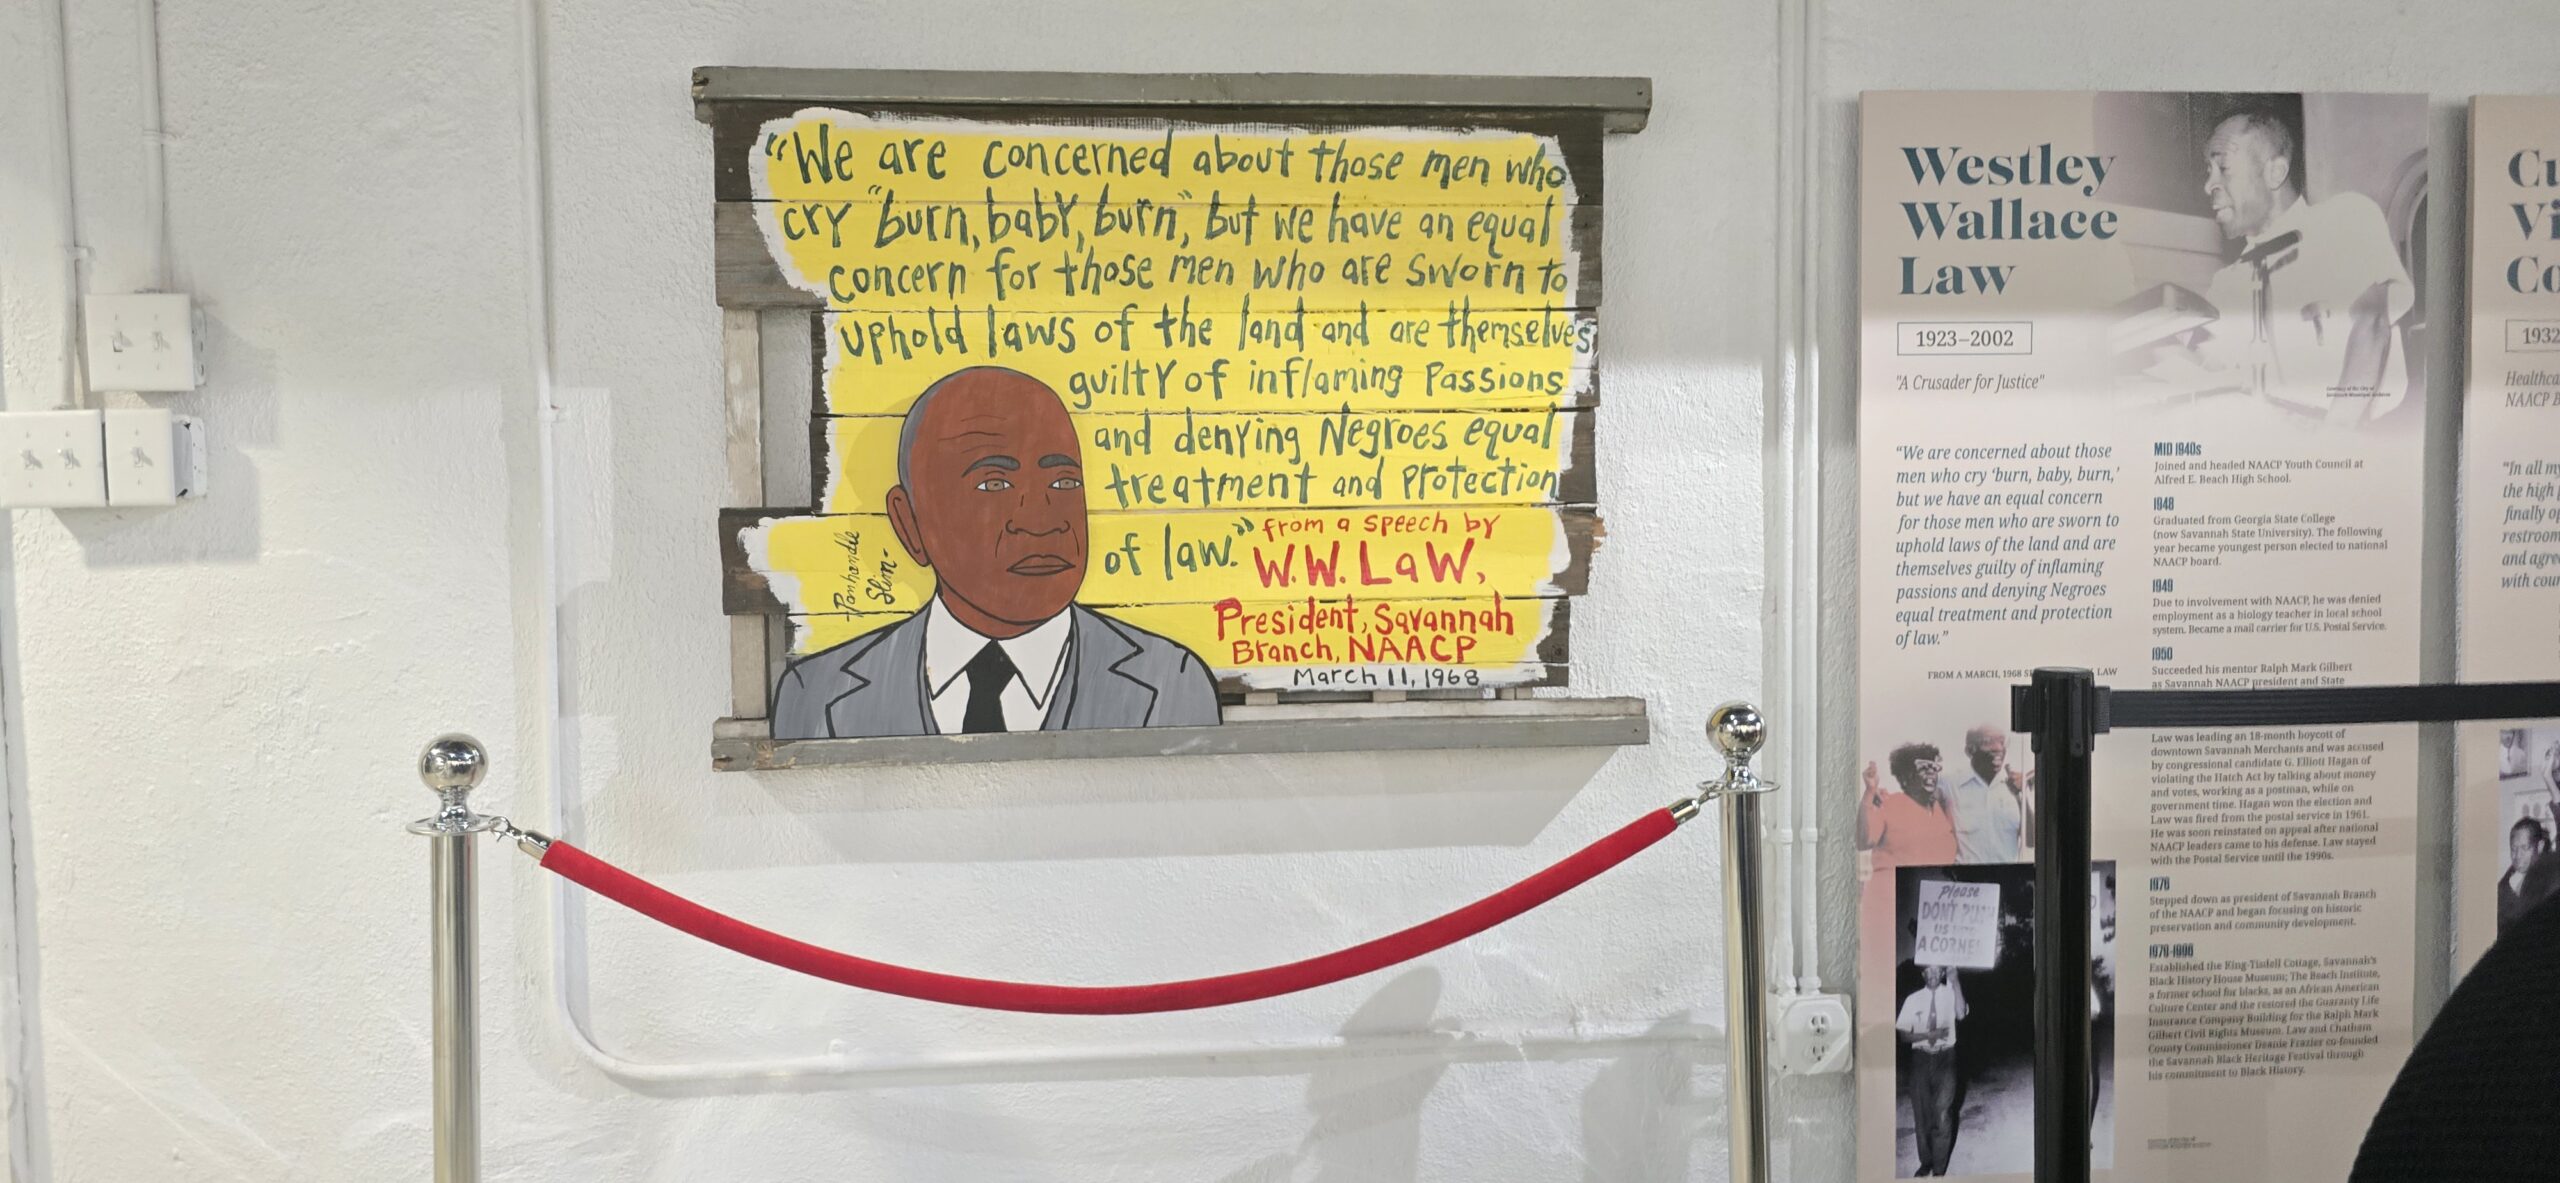 "We are concerned about those men who
cry "burn, baby, burn," but we have an equal
concern for those men who are sworn to
uphold laws of the land and are themselves
guilty of inflaming passions
and denying Negroes equal
treatment and protection
of law."
from a speech by
W.W. Law,
President, Savannah
Branch, NAACP
March 11, 1968
Panhandle
Slim-
Westley
Wallace
Law
1923–2002
"A Crusader for Justice"
"We are concerned about those
men who cry 'burn, baby, burn,'
but we have an equal concern
for those men who are sworn to
uphold laws of the land and are
themselves guilty of inflaming
passions and denying Negroes
equal treatment and protection
of law."
FROM A MARCH, 1968
LAW
Please
DON'T
US
A CORNER
MID 1940s
Joined and headed NAACP Youth Council at
Alfred E. Beach High School.
1948
Graduated from Georgia State College
(now Savannah State University). The following
year became youngest person elected to national
NAACP board.
1949
Due to involvement with NAACP, he was denied
employment as a biology teacher in local school
system. Became a mail carrier for U.S. Postal Service.
1950
Succeeded his mentor Ralph Mark Gilbert
as Savannah NAACP president and State
Law was leading an 18-month boycott of
downtown Savannah Merchants and was accused
by congressional candidate G. Elliott Hagan of
violating the Hatch Act by talking about money
and votes, working as a postman, while on
government time. Hagan won the election and
Law was fired from the postal service in 1961.
He was soon reinstated on appeal after national
NAACP leaders came to his defense. Law stayed
with the Postal Service until the 1990s.
1976
Stepped down as president of Savannah Branch
of the NAACP and began focusing on historic
preservation and community development.
Established the King-Tisdell Cottage, Savannah's
Black History House Museum; The Beach Institute,
a former school for blacks, as an African American
Culture Center and the restored the Guaranty Life
Insurance Company Building for the Ralph Mark
Gilbert Civil Rights Museum. Law and Chatham
County Commissioner Deanie Frazier co-founded
the Savannah Black Heritage Festival through
his commitment to Black History.
1932
NAACP
"In all my
the high
finally
and
with